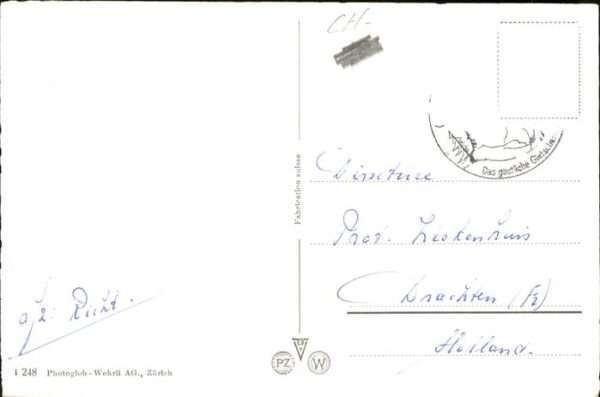 CH-
Das gastliche
Fabrication suisse
Directrice
Prot. Ziekenhuis
Drachten (Fr)
Holland.
4 248 Photoglob-Wehrli AG., Zürich
PZ
W